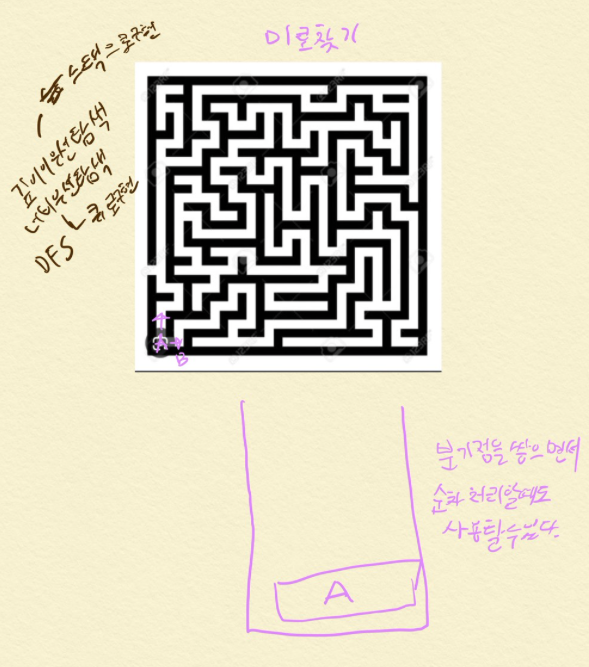 미로찾기
스택으로구현
깊이우선탐색
너비우선탐색
DFS
큐로구현
A
B
A
분기점을 쌓으면서
순차 처리할때도
사용할수있다.